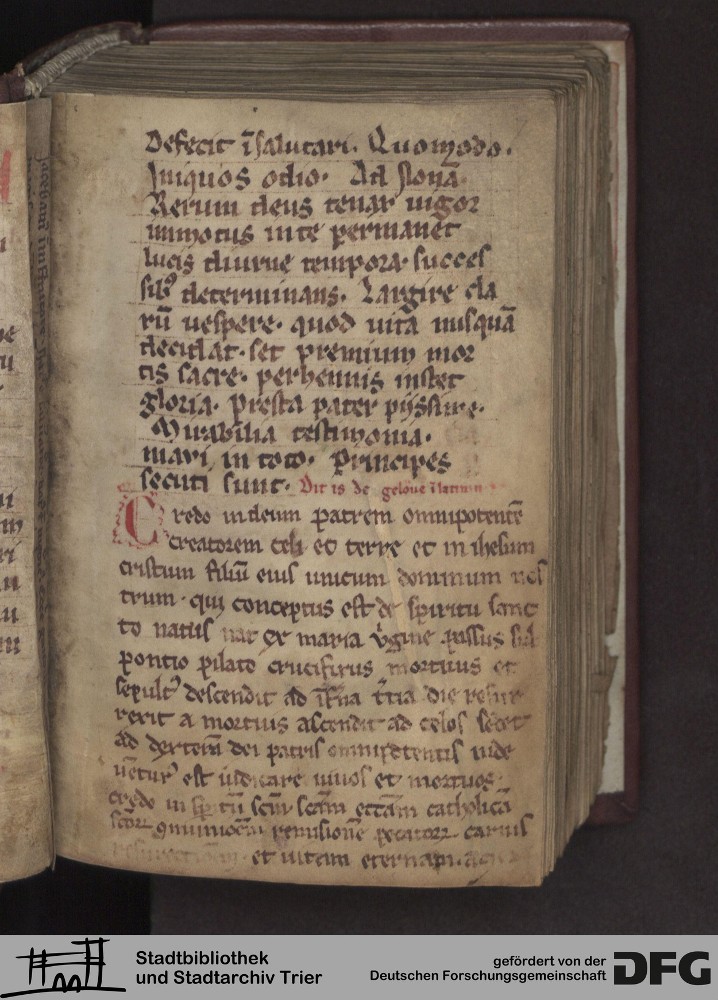 Defecit īsalutari. Quomodo.
Iniquos odio. Ad Nonā
Rerum deus tenax uigor
inmotus inte permanēt
lucis diurne tempora. succes
sib⁹ determinans. Largire cla
rū uespere. quod uita nusquā
decidat. set premium mor
tis sacre. perhennis instet
gloria. Presta pater pijssime.
Mirabilia testimonia.
maui in toto. Principes
secuti sunt. Dit is de geloue ī latinen
Credo indeum patrem omnipotentē
creatorem celi et terre et in ihesum
cristum filiū eius unicum dominum nos
trum. qui conceptus est de spiritu sanc
to natus ex maria v̊gine passus sub
pontio pilato crucifixus mortuus et
sepult⁹ descendit ad īf̄na t̄tia die resur
rexit a mortuis ascendit ad celos sedet
ad dexterā dei patris omnipotentis inde
uētur⁹ est iudicare uiuos et mortuos.
credo in sp̄tū scm̄ scām ecc̄am catholicā
sc̄oꝝ ꝯmunioēm remissionē pecatoꝝ carnis
resurrectionem. et uitam eternam.
Stadtbibliothek
und Stadtarchiv Trier
gefördert von der
Deutschen Forschungsgemeinschaft
DFG